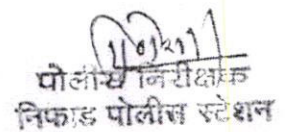 पोलीस निरीक्षक
निफाड पोलीस स्टेशन